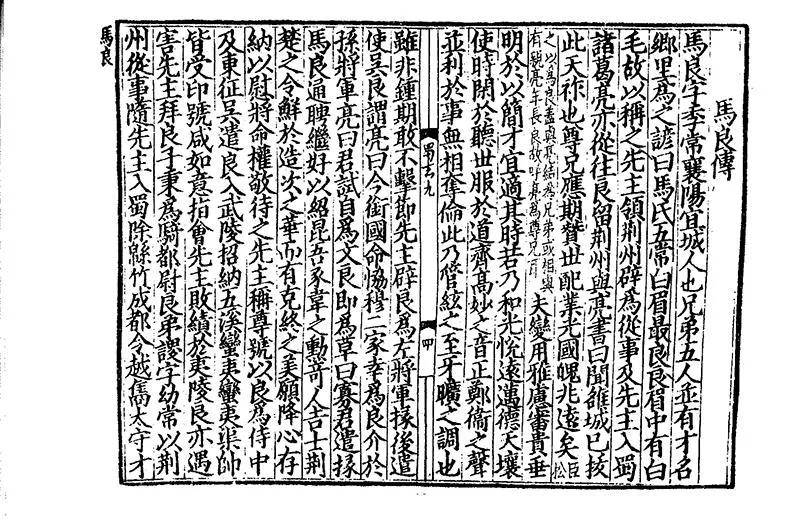 馬良傳
馬良字季常襄陽宜城人也兄弟五人並有才名
鄉里為之諺曰馬氏五常白眉最良良眉中有白
毛故以稱之先主領荆州辟為從事及先主入蜀
諸葛亮亦從往良留荆州與亮書曰聞雒城已拔
此天祚也尊兄應期贊世配業光國魄兆遠矣臣松
之以為良蓋與亮結為兄弟或相與
有親亮年長良故呼亮為尊兄耳
夫變用雅慮審貴垂
明於以簡才宜適其時若乃和光悅遠邁德天壤
使時閑於聽世服於道齊高妙之音正鄭衞之聲
並利於事無相奪倫此乃管絃之至牙曠之調也
蜀志九
四
雖非鍾期敢不擊節先主辟良為左將軍掾後遣
使吳良謂亮曰今銜國命恊穆二家幸為良介於
孫將軍亮曰君試自為文良即為草曰寡君遣掾
馬良通聘繼好以紹昆吾豕韋之勳奇人吉士荆
楚之令鮮於造次之華而有克終之美願降心存
納以慰將命權敬待之先主稱尊號以良為侍中
及東征吳遣良入武陵招納五溪蠻夷蠻夷渠帥
皆受印號咸如意指會先主敗績於夷陵良亦遇
害先主拜良子秉為騎都尉良弟謖字幼常以荆
州從事隨先主入蜀除緜竹成都令越嶲太守才
馬良